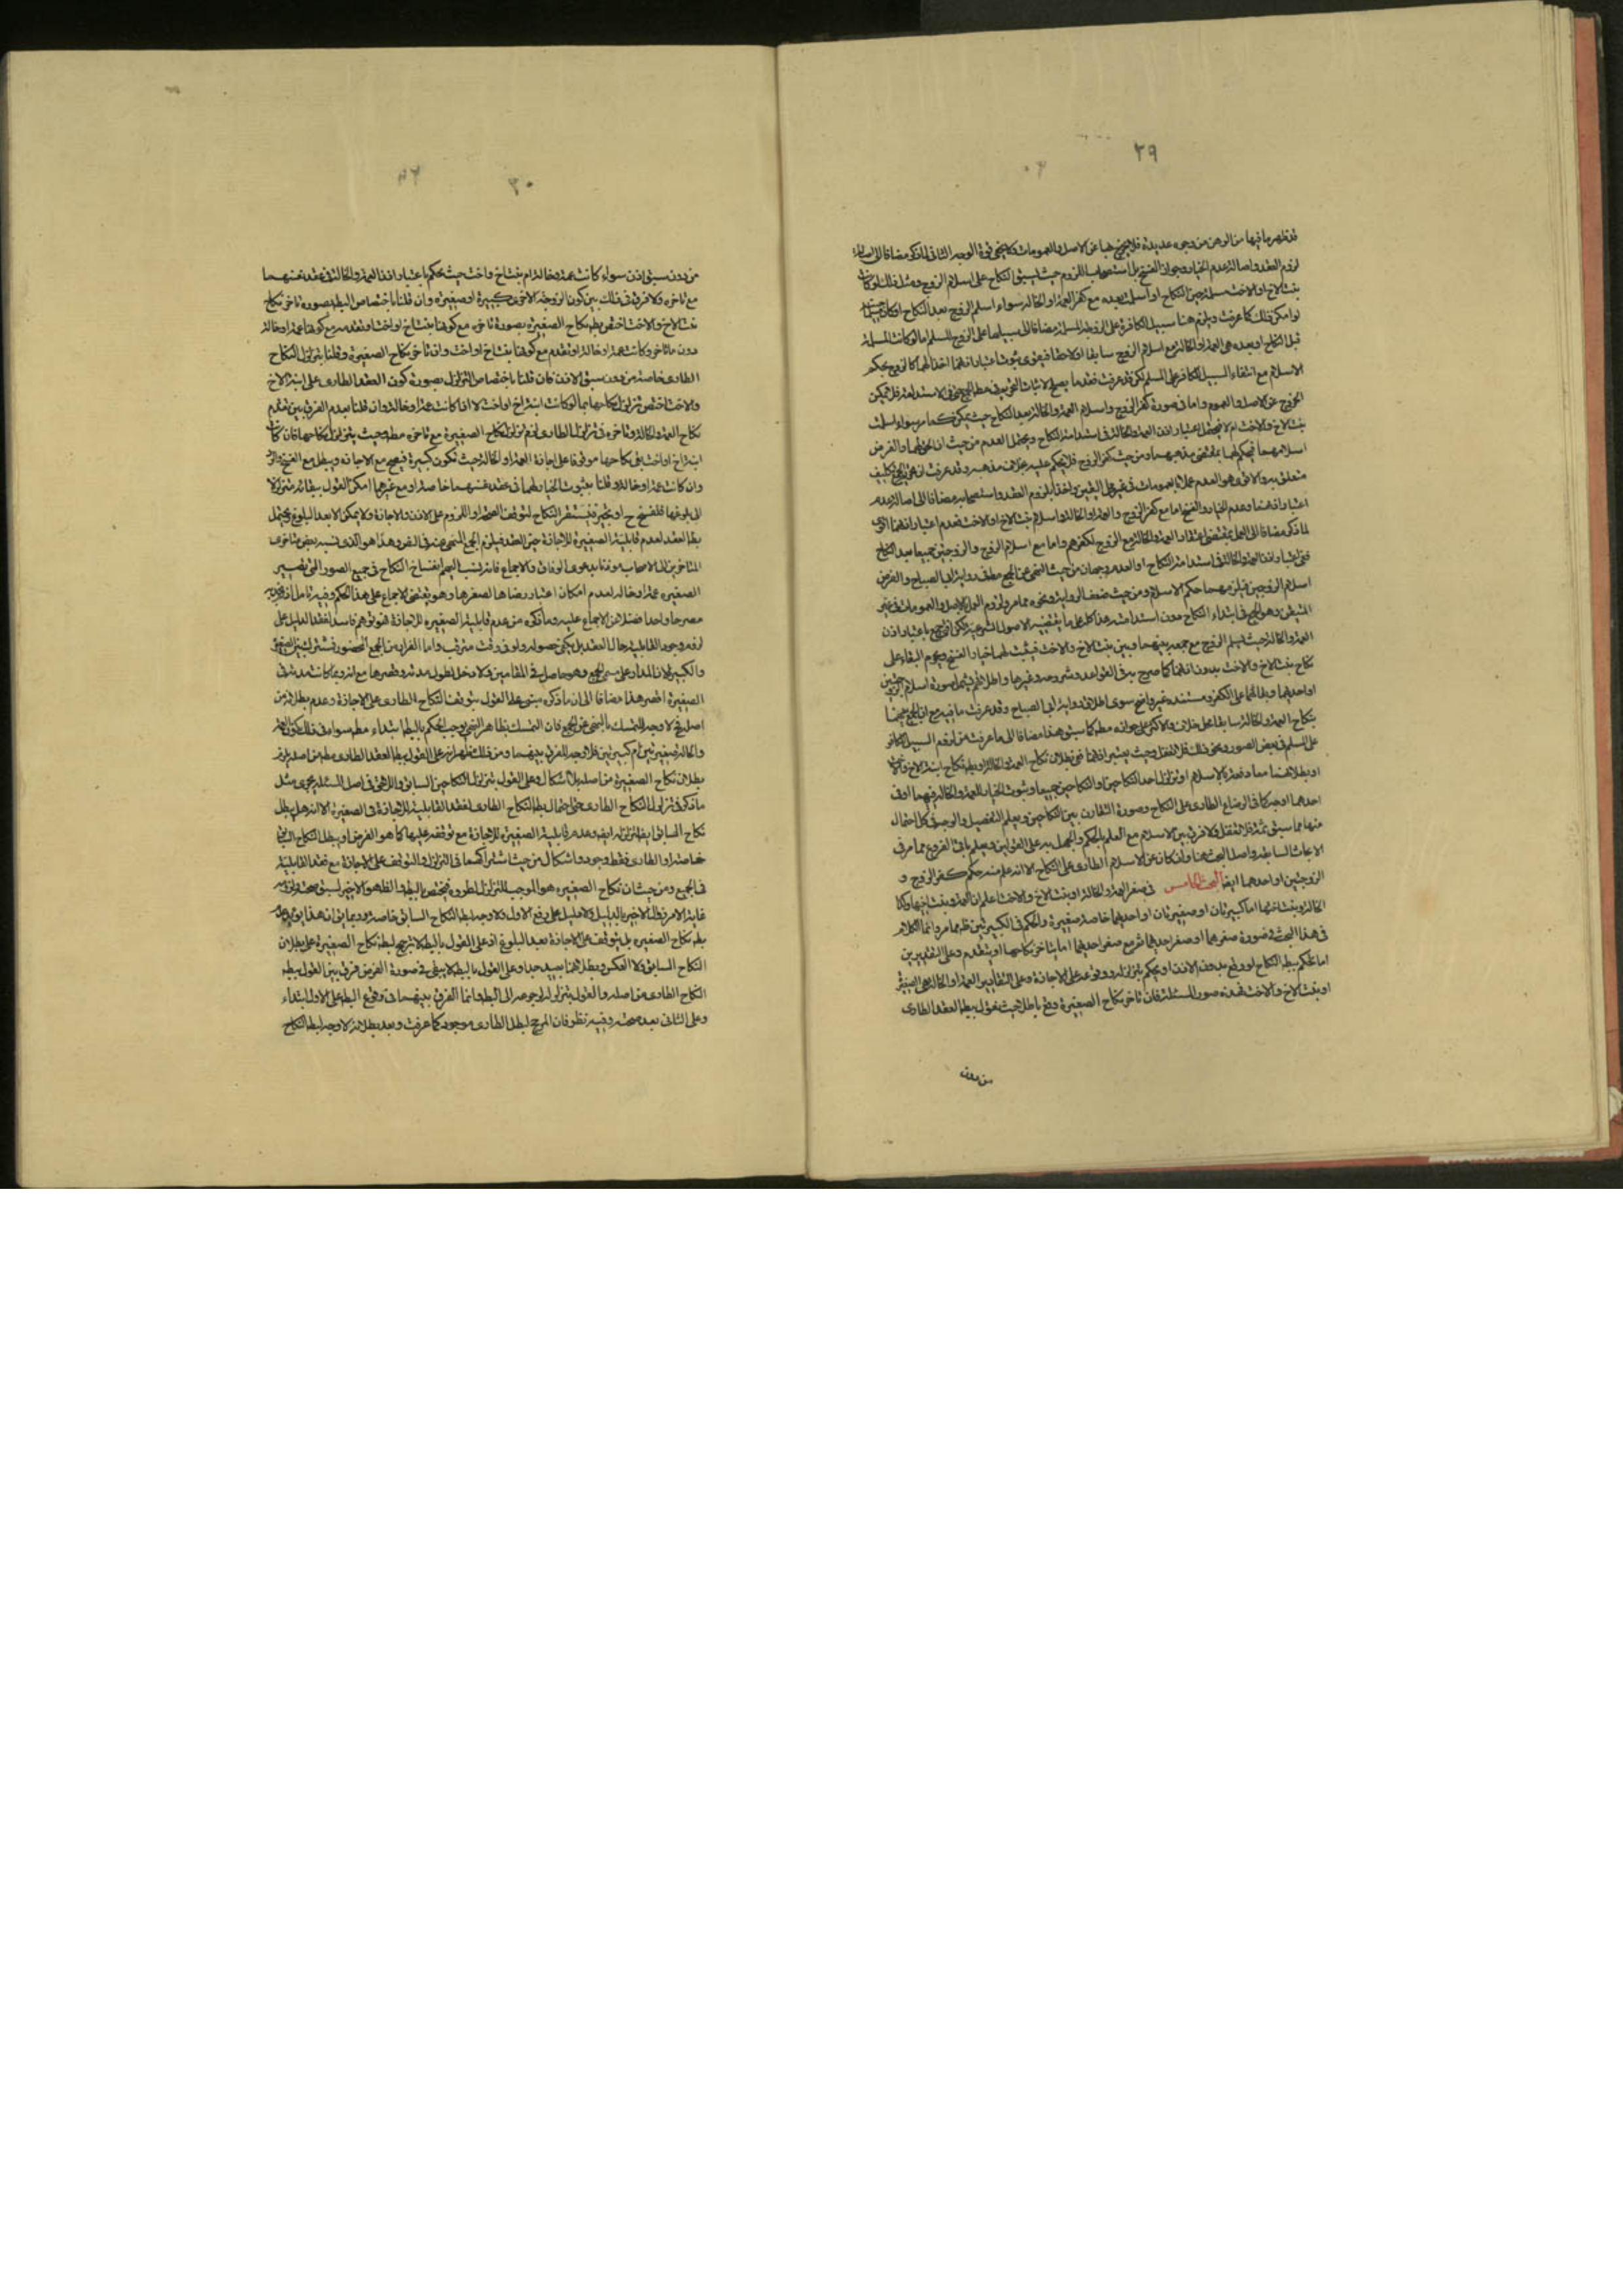 ٢٩
قد ظهر ما فيها من الوهن من وجوه عديدة فلا يخرج بها عن الاصل والعمومات ولا يخفى قوة الوجه الثانى لما ذكر مضافا الى اصالة
لزوم العقد واصالة عدم الخيار وجواز الفسخ بل استصحاب اللزوم حيث يسبق النكاح على اسلام الزوج ومثل ذلك لو كانت
بنت الاخ او الاخت مسلمة حين النكاح او اسلمت بعده مع كفر العمة او الخالة سواء اسلم الزوج بعد النكاح او كان
لو امكن ذلك كما عرفت ويلزم هنا سبيل الكافرة على الزوجة المسلمة مضافا الى سبيلها على الزوج المسلم اما لو كانت المسلمة
قبل النكاح او بعده هى العمة او الخالة مع اسلام الزوج سابقا او لاحقا فيقوى ثبوت اعتبار اذنهما اخذا لهما كالزوج بحكم
الاسلام مع انتفاء السبيل للكافر على المسلم لكن قد عرفت عدم ما يصلح لاثبات
الخروج عن الاصل والعموم واما فى صورة كفر الزوج واسلام العمة والخالة بعد النكاح حيث يمكن كما مر سواء اسلمت
بنت الاخ والاخت ام لا فيحتمل اعتبار اذن العمة والخالة فى استدامة النكاح ويحتمل العدم من حيث
اسلامهما فيحكم لهما بمقتضى مذهبهما ومن حيث كفر الزوج فلا يحكم عليه بخلاف مذهبه وقد عرفت
متعلق به والاقوى هو العدم عملا بالعمومات فى غير محل اليقين واخذا بلزوم العقد واستصحابه مضافا الى اصالة عدم
اعتبار اذنهما وعدم الخيار والفسخ اما مع كفر الزوج والعمة او الخالة واسلام بنت الاخ او الاخت فعدم اعتبار اذنهما اقوى
لما ذكر مضافا الى العمل بمقتضى اعتقاد العمة والخالة مع الزوج لكفرهم واما مع اسلام الزوج والزوجتين جميعا بعد النكاح
ففى اعتبار اذن العمة والخالة فى استدامة النكاح او العدم وجهان من حيث النهى عن الجمع مطلقا فى رواية ابى الصباح والفرض
اسلام الزوجين فيلزمهما حكم الاسلام ومن حيث ضعف الرواية ونحوه مما مر ولزوم العمل بالاصل والعمومات فى غير
المتيقن وهو الجمع فى ابتداء النكاح دون استدامته هذا كله على ما يقتضيه الاصول الشرعية لكن
العمة والخالة حيث اسلم الزوج مع جمعه بينهما وبين بنت الاخ والاخت فيثبت لهما خيار الفسخ ويحرم البقاء على
نكاح بنت الاخ والاخت بدون اذنهما كما صرح به فى القواعد وشروحه وغيرها
او احديهما وبقائهما على الكفر ومستنده غير واضح سوى اطلاق رواية ابى الصباح وقد عرفت ما فيه مع ان
بنكاح العمة والخالة سابقا على خلاف والاكثر على جوازه مطلقا كما سبق هذا مضافا الى ما عرفت من لزوم السبيل للكافر
على المسلم فى بعض الصور ونحو ذلك فلا تغفل وحيث يعتبر اذنهما ففى بطلان نكاح العمة والخالة او بطلان نكاح ابنة الاخ والاخت
او بطلانهما معا دفعة بالاسلام او تزلزل احد النكاحين او النكاحين جميعا وثبوت الخيار للعمة والخالة فيهما او فى
احدهما اوجه كما فى الرضاع الطارى على النكاح وصورة التقارن بين النكاحين ويعلم التفصيل والوجه فى كل احتمال
منها مما سبق ثمة فلا تغفل ولا فرق بين الاسلام مع العلم بالحكم والجهل به على القولين ويعلم باقى الفروع مما مر فى
الابحاث السابقة واصل البحث هنا وان كان عن الاسلام الطارى على النكاح الا انه علم منه حكم كفر الزوج و
الزوجتين او احدهما ايضا البحث الخامس فى صغر العمة والخالة او بنت الاخ والاخت اعلم ان العمة وبنت اخيها وكذا
الخالة وبنت اختها اما كبيرتان او صغيرتان او احديهما خاصة صغيرة والحكم فى الكبيرتين ظهر مما مر وانما الكلام
فى هذا البحث فى صورة صغرهما او صغر احديهما ثم مع صغر احديهما اما يتاخر نكاحها او يتقدم وعلى التقديرين
اما نحكم ببطلان النكاح لو وقع بدون الاذن او نحكم بتزلزله ووقوعه على الاجازة وعلى التقادير العمة او الخالة هى الصغيرة
او بنت الاخ والاخت فهذه صور المسئلة فان تاخر نكاح الصغيرة وقع باطلا حيث نقول ببطلان العقد الطارى
من دون
٣٠
من دون سبق اذن سواء كانت عمة وخالة ام بنت اخ واخت حيث نحكم باعتبار اذن العمة والخالة فى عقد نفسهما
مع تاخره ولا فرق فى ذلك بين كون الزوجة الاخرى كبيرة او صغيرة وان قلنا باختصاص البطلان بصورة تاخر نكاح
بنت الاخ والاخت اختص بطلان نكاح الصغيرة بصورة تاخره مع كونها بنت اخ او اخت او تقدمه مع كونها عمة او خالة
دون ما تاخر وكانت عمة او خالة او تقدم مع كونها بنت اخ او اخت وان تاخر نكاح الصغيرة وقلنا بتزلزل النكاح
الطارى خاصة من دون سبق الاذن فان قلنا باختصاص التزلزل بصورة كون العقد الطارى على ابنة الاخ
والاخت اختص تزلزل نكاحها بما لو كانت ابنة اخ او اخت لا اذا كانت عمة او خالة وان قلنا بعدم الفرق بين تقدم
نكاح العمة والخالة وتاخره فى تزلزل الطارى لزم تزلزل نكاح الصغيرة مع تاخره مطلقا وحيث يتزلزل نكاحها فان كانت
ابنة اخ او اخت بقى نكاحها موقوفا على اجازة العمة او الخالة حيث تكون كبيرة فيصح مع الاجازة ويبطل مع الفسخ والرد
وان كانت عمة او خالة وقلنا بثبوت الخيار لهما فى عقد نفسهما خاصة او مع غيرهما امكن القول ببقائه متزلزلا
الى بلوغها فتفسخ ح او تجيز فيستقر النكاح لتوقف الصحة او اللزوم على الاذن والاجازة ولا يمكن الا بعد البلوغ ويحتمل
بطلان العقد لعدم قابلية الصغيرة للاجازة حين العقد فيلزم الجمع المنهى عنه فى الفور وهذا هو الذى نسبه بعض متاخرى
المتاخرين الى الاصحاب مؤذنا بدعوى الوفاق والاجماع فانه نسب اليهم انفساخ النكاح فى جميع الصور التى تصير
الصغيرة عمة او خالة لعدم امكان اعتبار رضاها لصغرها وهو يقتضى الاجماع على هذا الحكم وفيه تامل
مصرحا واحدا فضلا عن الاجماع عليه وما ذكره من عدم قابلية الصغيرة للاجازة فهو توهم فاسد لفقد الدليل على
لزوم وجود القابلية حال العقد بل يكفى حصوله ولو فى وقت مترقب واما الفرار من الجمع المحضور فمشترك بين الصغيرة
والكبيرة لان المدار على مسمى الجمع وهو حاصل فى المقامين ولا دخل لطول مدته وقصرها مع انه ربما كانت مدته فى
الصغيرة اقصر هذا مضافا الى ان ما ذكره مبنى على القول بتوقف النكاح الطارى على الاجازة وعدم بطلانه من
اصله فح لا وجه للتمسك بالنهى عن الجمع فان التمسك بظاهر النهى يوجب الحكم بالبطلان ابتداء مطلقا سواء فى ذلك كون العمة
والخالة صغيرتين ام كبيرتين فلا وجه للفرق بينهما ومن ذلك ظهر انه على القول ببطلان العقد الطارى مطلقا من اصله يلزم
بطلان نكاح الصغيرة من اصله بلا اشكال وعلى القول بتزلزل النكاحين السابق واللاحق فى اصل المسئلة يجرى مثل
ما ذكر فى تزلزل النكاح الطارى حتى احتمال بطلان النكاح الطارى لفقد القابلية للاجازة فى الصغيرة الا انه هل يبطل
نكاح السابق ايضا لتزلزله ايضا وعدم قابلية الصغيرة للاجازة مع توقفه عليها كما هو الفرض او يبطل النكاح السابق
خاصة او الطارى فقط وجوه واشكال من حيث اشتراكهما فى التزلزل والتوقف على الاجازة مع فقد القابلية
فى الجميع ومن حيث ان نكاح الصغيرة هو الموجب للتزلزل لطروه فيختص بالبطلان والظ هو الاخير لسبق صحة
غاية الامر فى الاخير بالدليل ولا دليل على رفع الاول ولا وجه لبطلان النكاح السابق خاصة وربما يق ان هذا
بطلان نكاح الصغيرة بل يتوقف على الاجازة بعد البلوغ اذ على القول بالبطلان لا ترجيح لبطلان نكاح الصغيرة على بطلان
النكاح السابق ولا العكس وبطلانهما بعيد جدا وعلى القول بالبطلان لا يبقى فى صورة الفرض فرق بين القول ببطلان
النكاح الطارى من اصله والقول بتزلزله لرجوعه الى البطلان وانما الفرق بينهما فى وقوع البطلان على الاول ابتداء
وعلى الثانى بعد صحته وفيه نظر فان المرجح لبطلان الطارى موجود كما عرفت وبعد بطلانه لا وجه لبطلان النكاح